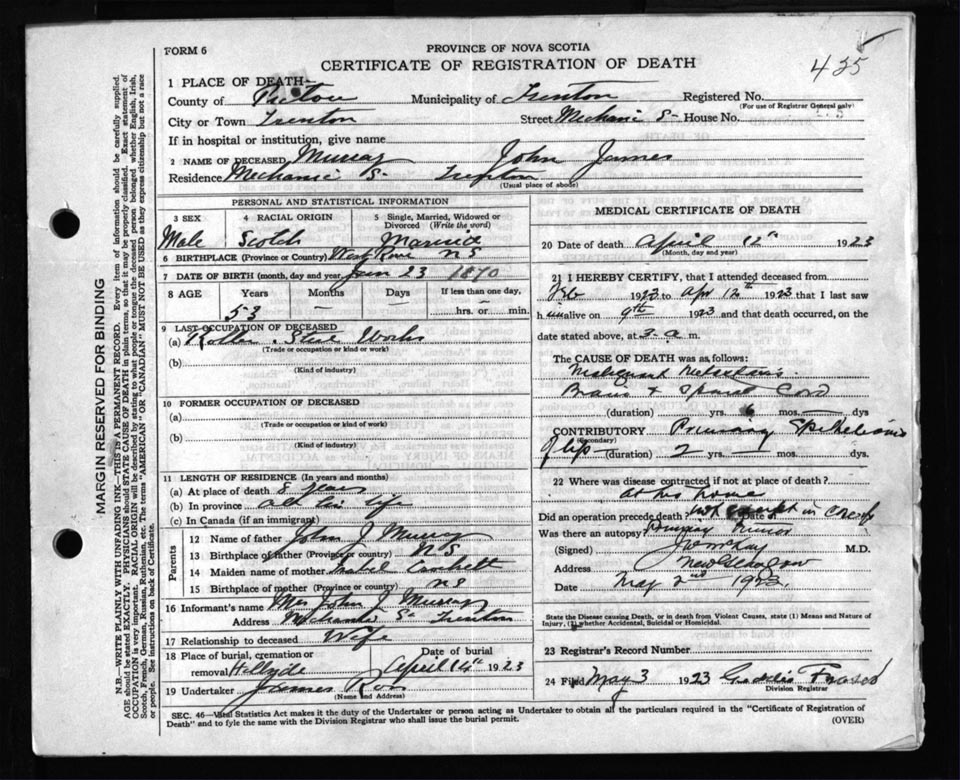 FORM 6
PROVINCE OF NOVA SCOTIA
CERTIFICATE OF REGISTRATION OF DEATH
425
1 PLACE OF DEATH—
County of Pictou Municipality of Trenton Registered No.
(For use of Registrar General only)
City or Town Trenton Street Mechanic St House No.
If in hospital or institution, give name
2 NAME OF DECEASED Murray John James
Residence Mechanic St Trenton
(Usual place of abode)
PERSONAL AND STATISTICAL INFORMATION
3 SEX 4 RACIAL ORIGIN 5 Single, Married, Widowed or Divorced (Write the word)
Male Scotch Married
6 BIRTHPLACE (Province or Country) West River NS
7 DATE OF BIRTH (month, day and year) Jan 23 1870
8 AGE Years Months Days If less than one day,
53 — — hrs. or min.
9 LAST OCCUPATION OF DECEASED
(a) Roller Steel Works
(Trade or occupation or kind or work)
(b)
(Kind of industry)
10 FORMER OCCUPATION OF DECEASED
(a)
(Trade or occupation or kind of work)
(b)
(Kind of industry)
11 LENGTH OF RESIDENCE (In years and months)
(a) At place of death 8 years
(b) In province all his life
(c) In Canada (if an immigrant)
Parents
12 Name of father John J Murray
13 Birthplace of father (Province or country) NS
14 Maiden name of mother
15 Birthplace of mother (Province or country) NS
16 Informant's name Mrs John J Murray
Address Mechanic St Trenton
17 Relationship to deceased Wife
18 Place of burial, cremation or removal Date of burial
April 14th 1923
19 Undertaker James Ross
(Name and Address)
MEDICAL CERTIFICATE OF DEATH
20 Date of death April 12th 1923
(Month, day and year)
21 I HEREBY CERTIFY, that I attended deceased from
Feb 1923 to Apr 12th 1923 that I last saw
him alive on 9th 1923 and that death occurred, on the
date stated above, at 3. a. m.
The CAUSE OF DEATH was as follows:
Malignant Metastasis
Brain & Spinal Cord
(duration) yrs. 6 mos. — dys
CONTRIBUTORY Primary Epithelioma
(Secondary)
of lip — (duration) 2 yrs. — mos. dys.
22 Where was disease contracted if not at place of death?
at his home
Did an operation precede death? not except in Date of
Was there an autopsy? primary tumor
(Signed) M.D.
Address New Glasgow
Date May 2nd 1923.
State the Disease causing Death, or in death from Violent Causes, state (1) Means and Nature of
Injury, (2) whether Accidental, Suicidal or Homicidal.
23 Registrar's Record Number
24 Filed May 3 1923 Fraser
Division Registrar
SEC. 46—Vital Statistics Act makes it the duty of the Undertaker or person acting as Undertaker to obtain all the particulars required in the "Certificate of Registration of
Death" and to fyle the same with the Division Registrar who shall issue the burial permit.
(OVER)
MARGIN RESERVED FOR BINDING
N.B.—WRITE PLAINLY WITH UNFADING INK—THIS IS A PERMANENT RECORD. Every item of information should be carefully supplied.
AGE should be stated EXACTLY. PHYSICIANS should STATE CAUSE OF DEATH in plain terms, so that it may be properly classified. Exact statement of
OCCUPATION is very important. RACIAL ORIGIN will be described by stating to what people or tongue the deceased person belonged whether English, Irish,
Scotch, French, German, Russian, Ruthenian, etc. The terms "AMERICAN" or "CANADIAN" MUST NOT BE USED as they express citizenship but not a race
or people. See instructions on back of Certificate.